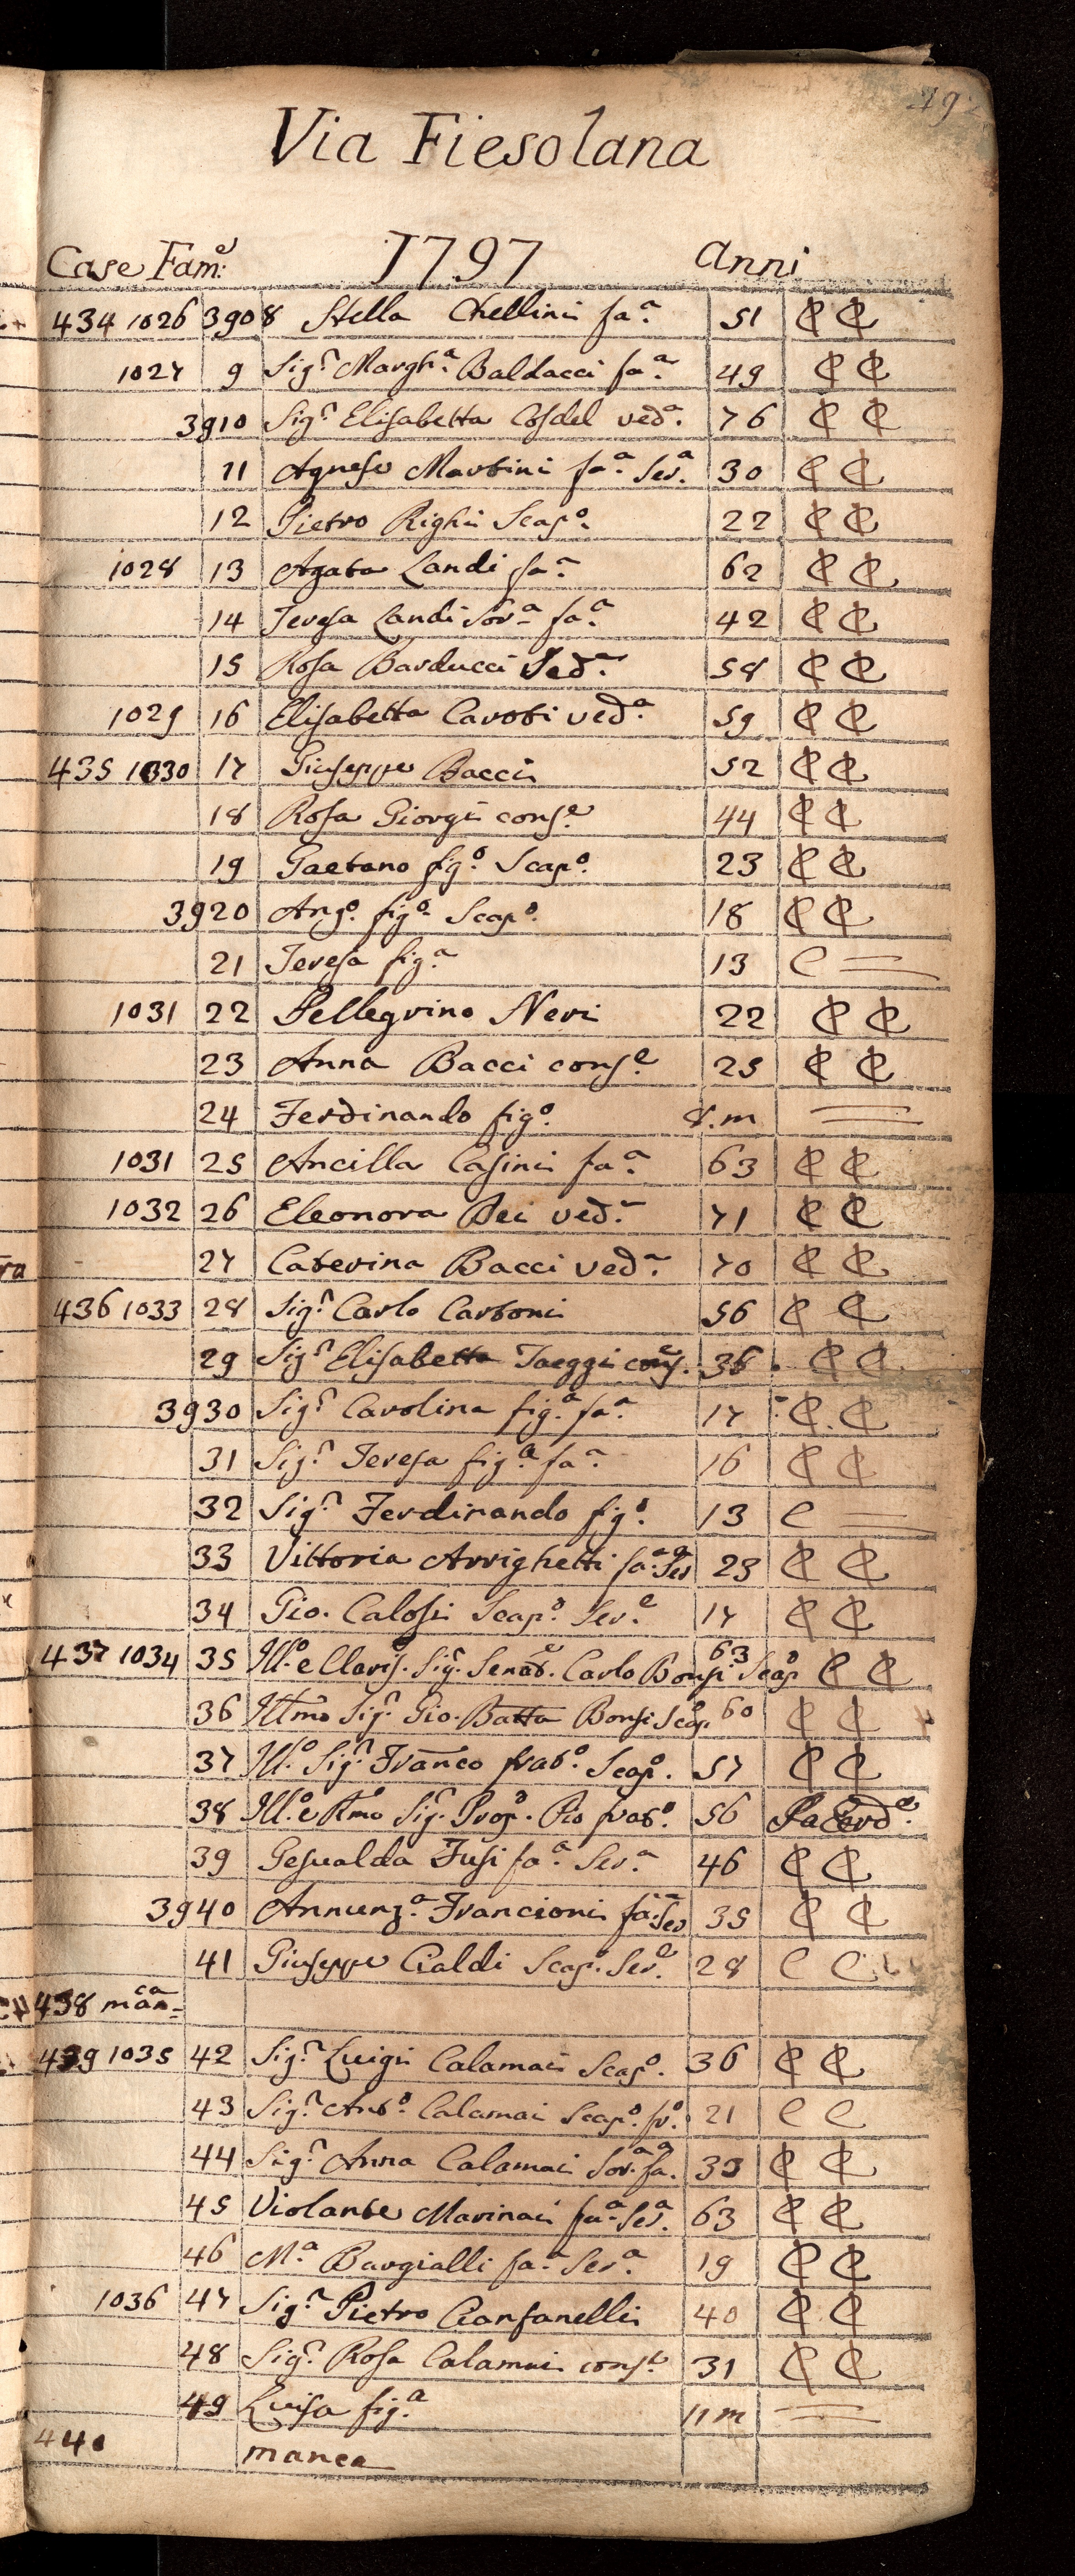 Via Fiesolana
Case Fam.e 1797 Anni
434 1026 3908 Stella Chellini fa.a 51 C C
1027 9 Sig.r Margh.a Baldacci fa.a 49 C C
3910 Sig.r Elisabetta Cosdel ved.a 76 C C
11 Agnese Martini fa.a Ser.a 30 C C
12 Pietro Righi Scap.o 22 C C
1028 13 Agata Landi fa.a 62 C C
14 Teresa Landi Sor.a fa.a 42 C C
15 Rosa Barducci Ved.a 58 C C
1029 16 Elisabetta Caroti ved.a 59 C C
435 1030 17 Giuseppe Bacci 52 C C
18 Rosa Giorgi cons.e 44 C C
19 Gaetano fig.o Scap.o 23 C C
3920 Ang.o fig.o Scap.o 18 C C
21 Teresa fig.a 13 C =
1031 22 Pellegrino Neri 22 C C
23 Anna Bacci cons.e 25 C C
24 Ferdinando fig.o 8.m =
1031 25 Ancilla Casini fa.a 63 C C
1032 26 Eleonora Bei ved.a 71 C C
27 Caterina Bacci ved.a 70 C C
436 1033 28 Sig.r Carlo Carboni 56 C C
29 Sig.r Elisabetta Taeggi cons. 36 C C
3930 Sig.r Carolina fig.a fa.a 17 C C
31 Sig.r Teresa fig.a fa.a 16 C C
32 Sig.r Ferdinando fig.o 13 C =
33 Vittoria Arrighetti fa.a Ser.a 23 C C
34 Gio. Calosi Scap.o Ser.e 17 C C
437 1034 35 Ill.o e Claris.o Sig.r Senat.e Carlo Bonsi Scap.o 63 C C
36 Illmo Sig.r Gio. Batta Bonsi Scap.o 60 C C
37 Ill.o Sig.r Franco frat.o Scap.o 57 C C
38 Ill.o e Rmo Sig.r Prop.o Pio frat.o 56 Sacerd.e
39 Gesualda Fusi fa.a Ser.a 46 C C
3940 Annunz.a Francioni fa.a Ser 35 C C
41 Giuseppe Cialdi Scap.o Ser.e 28 C C
438 man.ca
439 1035 42 Sig.r Luigi Calamai Scap.o 36 C C
43 Sig.r Ant.o Calamai Scap.o fr.o 21 C C
44 Sig.r Anna Calamai Sor.a fa.a 33 C C
45 Violante Marinai fa.a Ser.a 63 C C
46 M.a Bargialli fa.a Ser.a 19 C C
1036 47 Sig.r Pietro Cianfanelli 40 C C
48 Sig.r Rosa Calamai cons.e 31 C C
49 Luisa fig.a 11 m =
440 manca